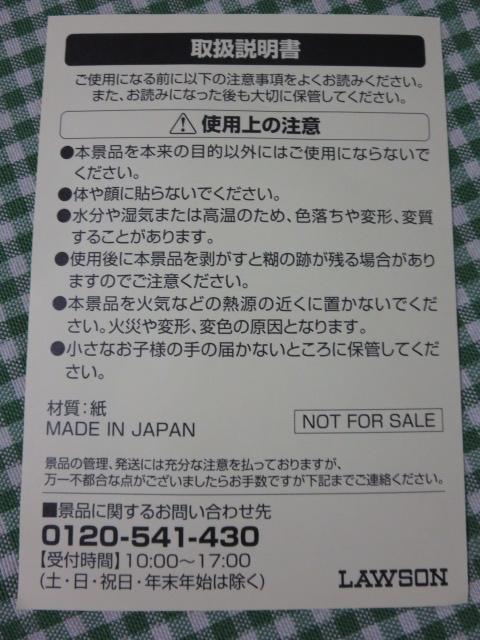 取扱説明書
ご使用になる前に以下の注意事項をよくお読みください。
また、お読みになった後も大切に保管してください。
⚠使用上の注意
●本景品を本来の目的以外にはご使用にならないで
ください。
●体や顔に貼らないでください。
●水分や湿気または高温のため、色落ちや変形、変質
することがあります。
●使用後に本景品を剥がすと糊の跡が残る場合があり
ますのでご注意ください。
●本景品を火気などの熱源の近くに置かないでくだ
さい。火災や変形、変色の原因となります。
●小さなお子様の手の届かないところに保管してくだ
さい。
材質：紙
MADE IN JAPAN
NOT FOR SALE
景品の管理、発送には充分な注意を払っておりますが、
万一不都合な点がございましたらお手数ですが下記までご連絡ください。
■景品に関するお問い合わせ先
0120-541-430
【受付時間】10:00～17:00
(土・日・祝日・年末年始は除く)
LAWSON